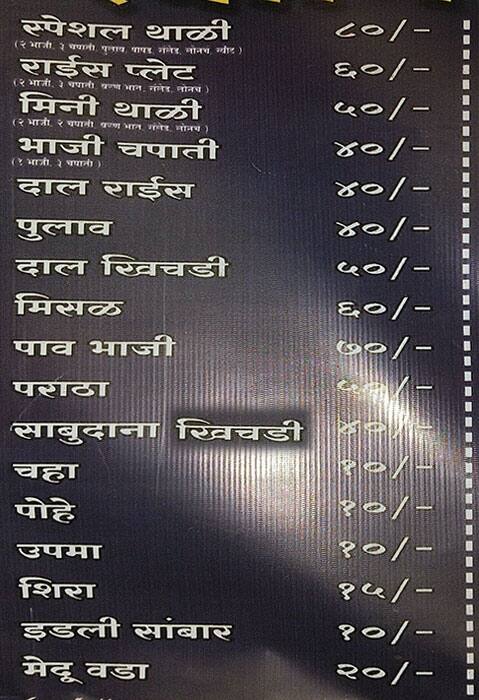 स्पेशल थाळी ८०/-
(२ भाजी, ३ चपाती, पुलाव, पापड, सॅलेड, लोनच, स्वीट)
राईस प्लेट ६०/-
(२ भाजी, ३ चपाती, वरण भात, सॅलेड, लोनच)
मिनी थाळी ५०/-
(२ भाजी, २ चपाती, वरण भात, सॅलेड, लोनच)
भाजी चपाती ४०/-
(१ भाजी, ३ चपाती)
दाल राईस ४०/-
पुलाव ४०/-
दाल खिचडी ५०/-
मिसळ ६०/-
पाव भाजी ७०/-
पराठा ५०/-
साबुदाना खिचडी ४०/-
चहा १०/-
पोहे १०/-
उपमा १०/-
शिरा १५/-
इडली सांबार १०/-
मेदू वडा २०/-